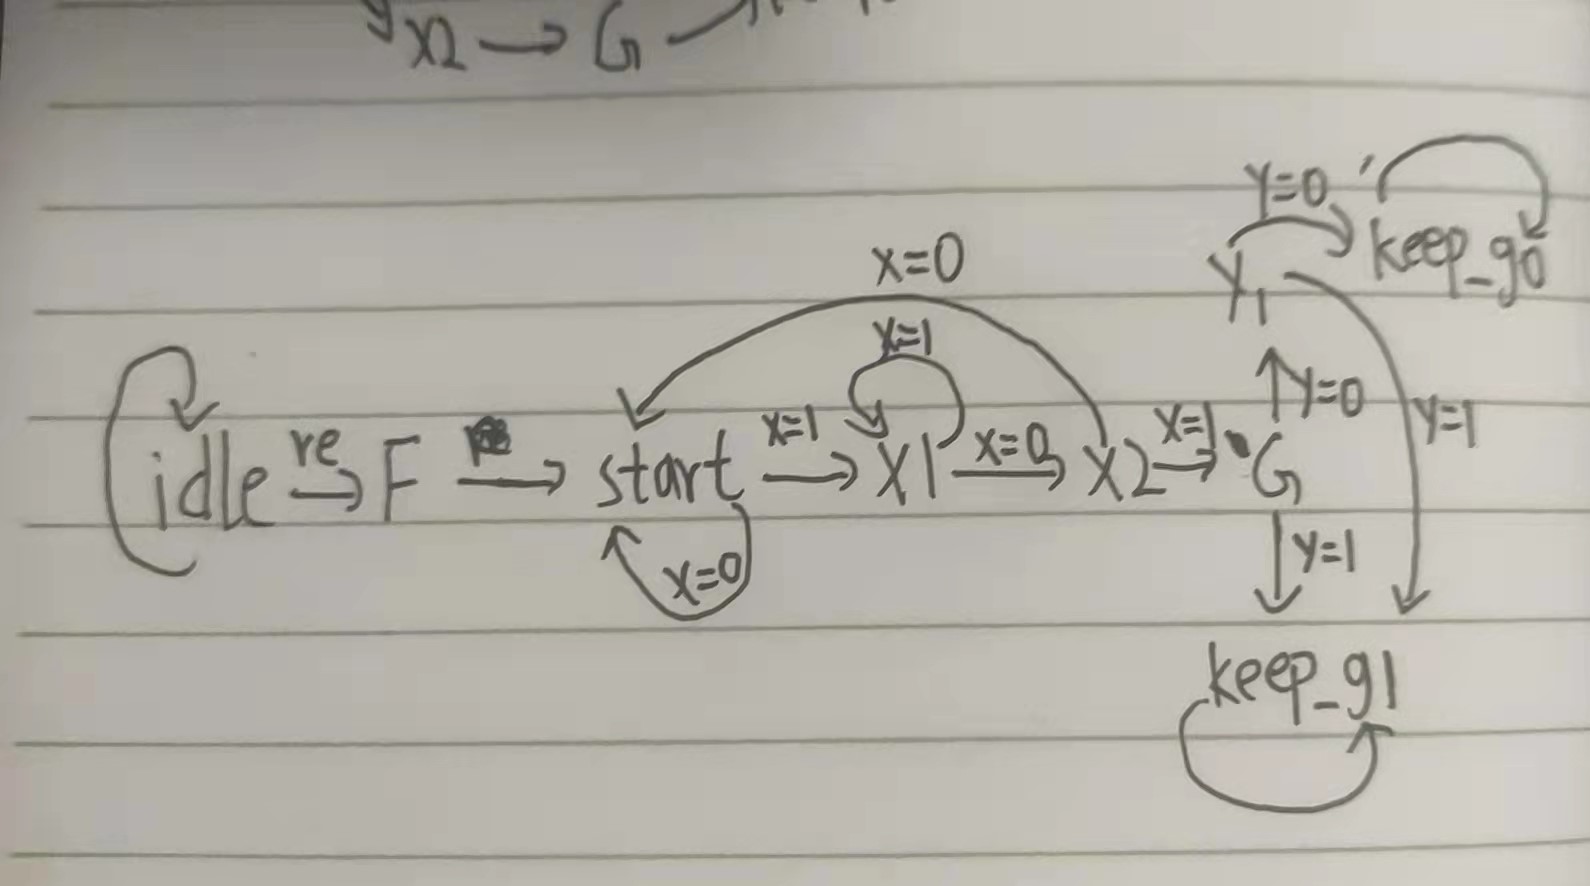 X2 → G
Y=0
keep_g0
Y1
x=0
x=1
Y=0
Y=1
idle re → F → start x=1 → X1 x=0 → X2 x=1 → G
x=0
Y=1
keep_g1